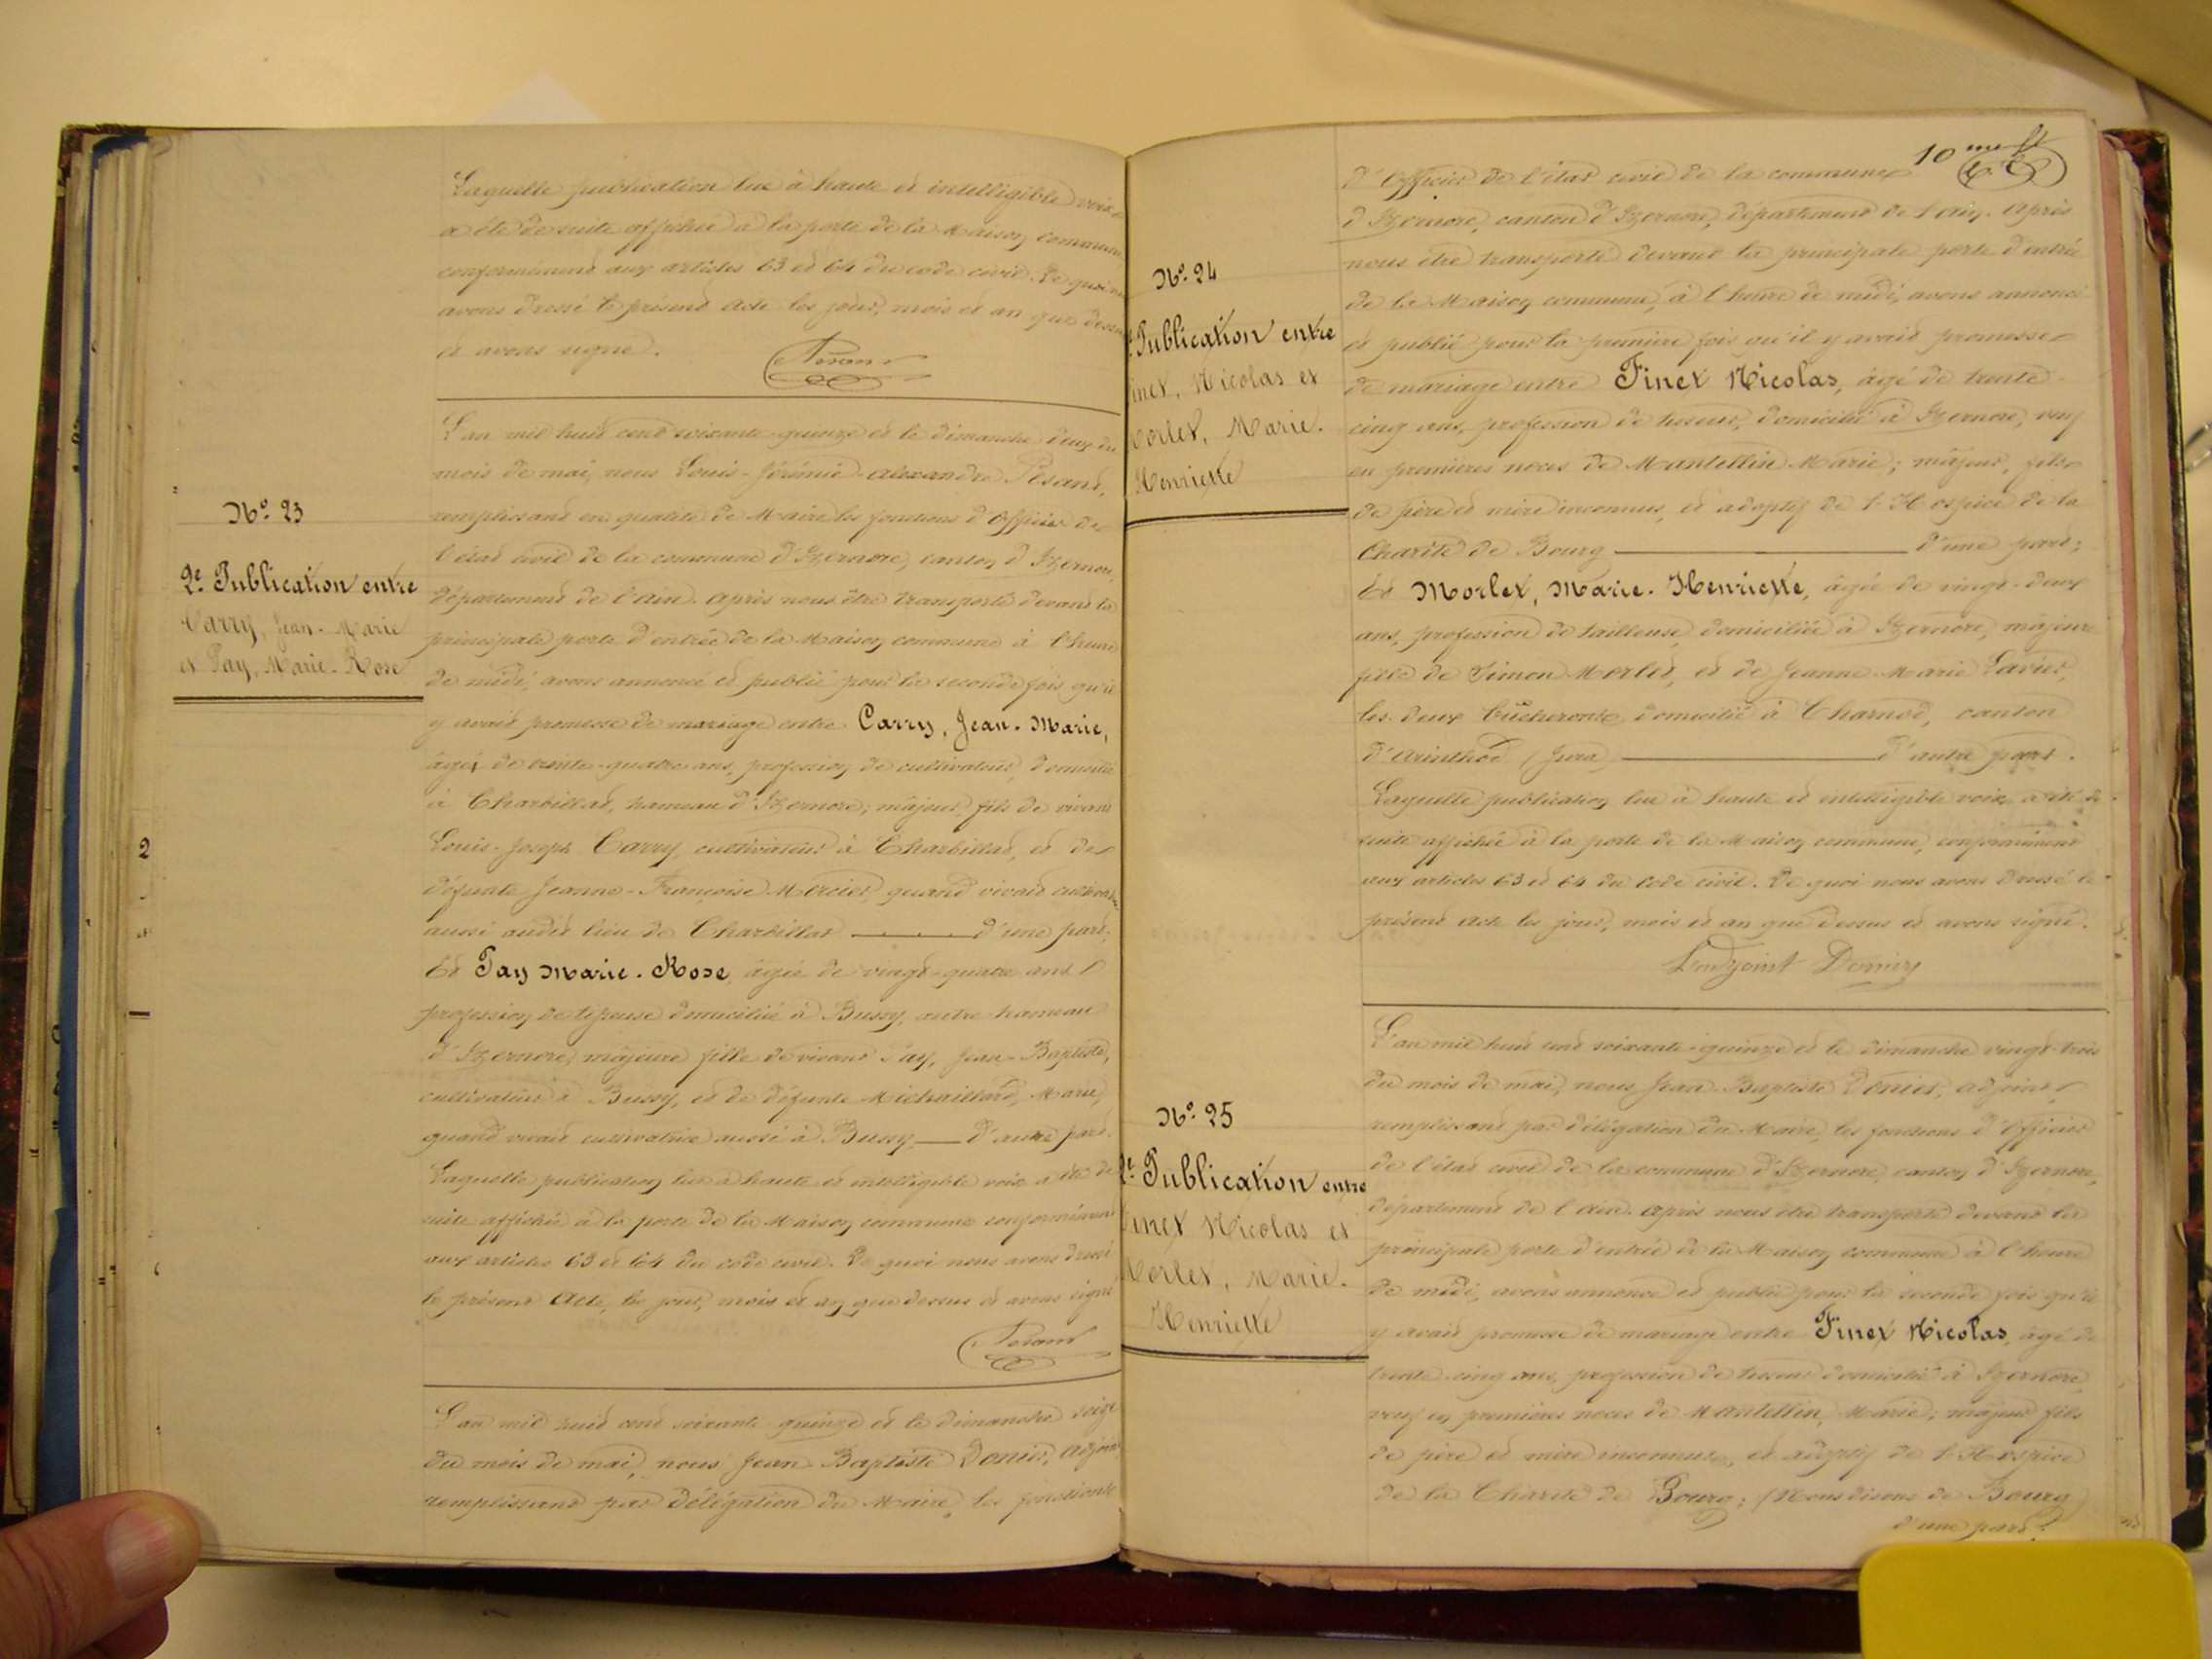 Laquelle publication lue à haute et intelligible voix
a été de suite affichée à la porte de la Maison commune
conformément aux articles 63 et 64 du code civil. De quoi
avons dressé le présent acte les jour, mois et an que dessus
et avons signé.
Pesant
N.º 23
2e Publication entre
Carry, Jean-Marie
et Pay, Marie-Rose
L'an mil huit cent soixante-quinze et le dimanche deux du
mois de mai, nous Louis-Jérémie-Alexandre Pesant,
remplissant en qualité de Maire les fonctions d'Officier de
l'état civil de la commune d'Izernore, canton d'Izernore,
département de l'Ain. Après nous être transporté devant la
principale porte d'entrée de la Maison commune à l'heure
de midi, avons annoncé et publié pour la seconde fois qu'il
y avait promesse de mariage entre Carry, Jean-Marie,
âgé de trente-quatre ans, profession de cultivateur, domicilié
à Charbillat, hameau d'Izernore; majeur, fils de vivant
Louis-Joseph Carry, cultivateur à Charbillat, et de
défunte Jeanne-Françoise Mercier, quand vivait cultivatrice
aussi audit lieu de Charbillat d'une part;
Et Pay Marie-Rose, âgée de vingt-quatre ans
profession de domiciliée à Bussy, autre hameau
d'Izernore, majeure fille de vivant Pay, Jean-Baptiste,
cultivateur à Bussy, et de défunte Michaillard, Marie,
quand vivait cultivatrice aussi à Bussy d'autre part.
Laquelle publication lue à haute et intelligible voix a été de
suite affichée à la porte de la Maison commune conformément
aux articles 63 et 64 du code civil. De quoi nous avons dressé
le présent Acte, les jour, mois et an que dessus et avons signé
Pesant
L'an mil huit cent soixante-quinze et le dimanche seize
du mois de mai, nous Jean-Baptiste Donier, Adjoint
remplissant par délégation du Maire, les fonctions
10me ft
N.º 24
Publication entre
inet, Nicolas et
orlet, Marie-
Henriette
d'Officier de l'état civil de la commune
d'Izernore, canton d'Izernore, département de l'Ain. Après
nous être transporté devant la principale porte d'entrée
de la Maison commune, à l'heure de midi, avons annoncé
et publié pour la première fois qu'il y avait promesse
de mariage entre Finet Nicolas, âgé de trente-
cinq ans, profession de domicilié à Izernore, veuf
en premières noces de Mantellin Marie; majeur, fils
de père et mère inconnus, et adoptif de l'Hospice de la
Charité de Bourg d'une part;
Et Morlet, Marie-Henriette, âgée de vingt-deux
ans, profession de tailleuse, domiciliée à Izernore, majeure
fille de Simon Morlet, et de Jeanne-Marie Lavier,
les deux bûcherons domicilié à Charnod, canton
d'Arinthod (Jura) d'autre part.
Laquelle publication lue à haute et intelligible voix a été de
suite affichée à la porte de la Maison commune, conformément
aux articles 63 et 64 du Code civil. De quoi nous avons dressé le
présent Acte les jour, mois et an que dessus et avons signé.
L'adjoint Donier
N.º 25
2e Publication entre
inet Nicolas et
Morlet, Marie-
Henriette
L'an mil huit cent soixante-quinze et le dimanche vingt-trois
du mois de mai, nous Jean-Baptiste Donier, adjoint
remplissant par délégation du Maire, les fonctions d'Officier
de l'état civil de la commune d'Izernore, canton d'Izernore,
département de l'Ain. Après nous être transporté devant la
principale porte d'entrée de la Maison commune à l'heure
de midi, avons annoncé et publié pour la seconde fois qu'il
y avait promesse de mariage entre Finet Nicolas, âgé de
trente-cinq ans, profession de domicilié à Izernore,
veuf en premières noces de Mantellin, Marie; majeur fils
de père et mère inconnus, et adoptif de l'Hospice
de la Charité de Bourg; (Nous disons de Bourg)
d'une part;